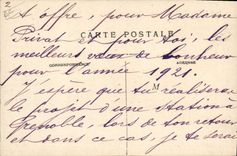 2
t offre, pour Madame
CARTE POSTALE
Privat et pour toi, les
meilleurs vœux de bonheur
CORRESPONDANCE
ADRESSE
pour l'année 1921.
M
J'espère que tu réaliseras
le projet d'une station à
Grenoble, lors de ton retour
et dans ce cas, je te serai